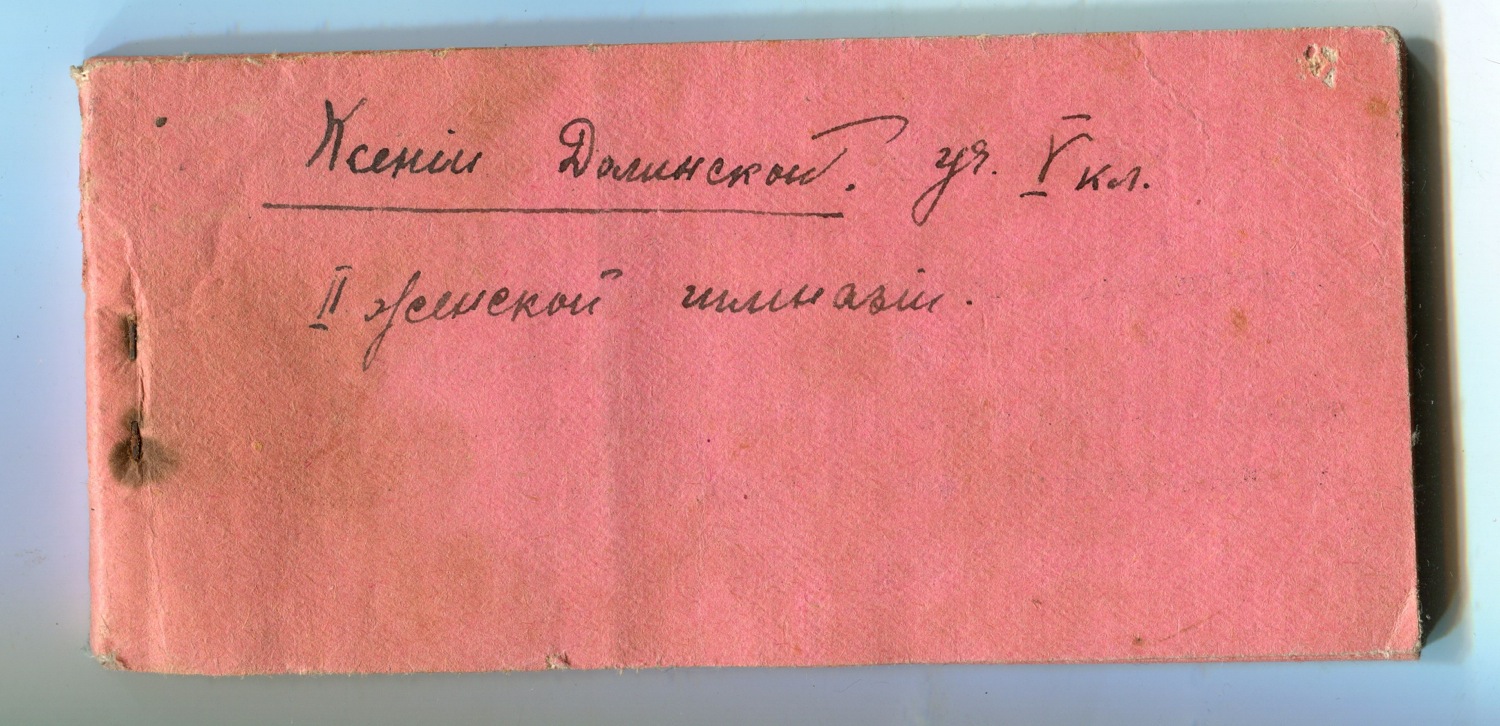 Ксеніи Долинской. уч. V кл.
II женской гимназіи.